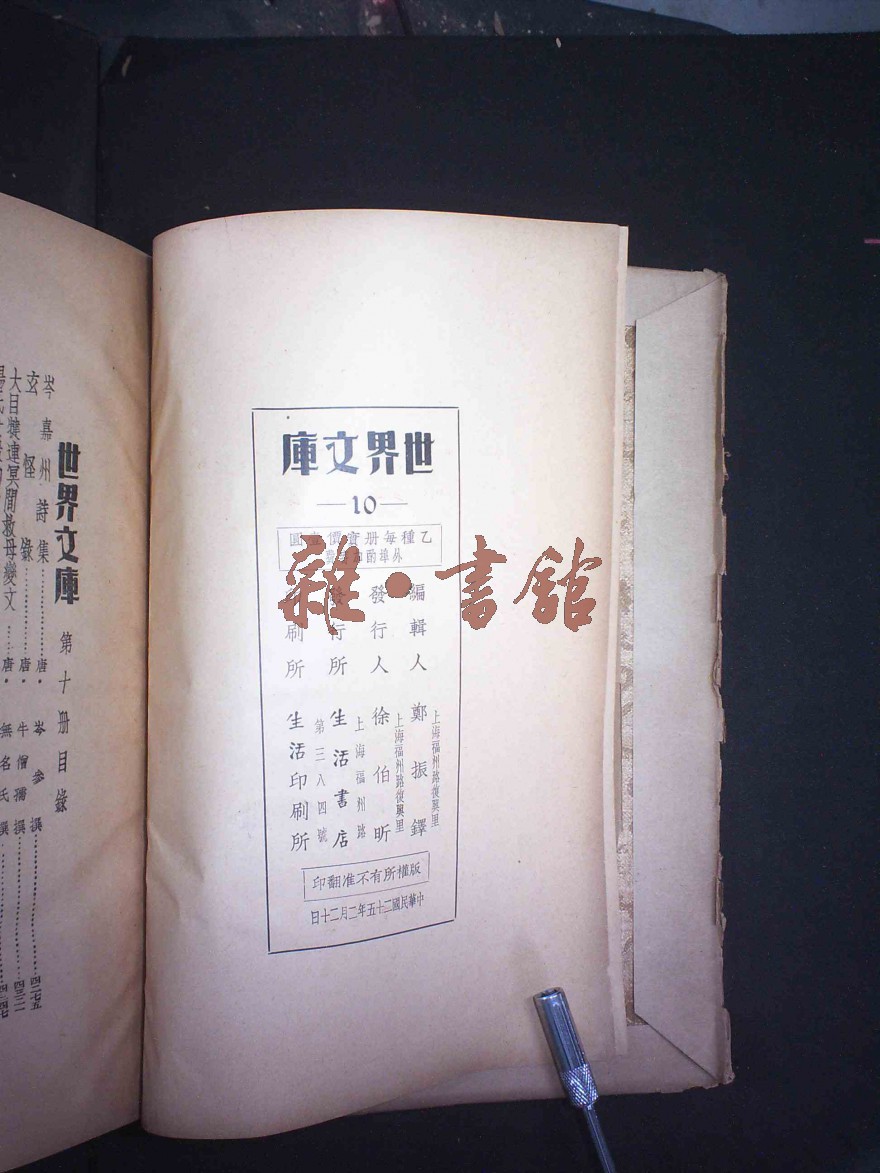 世界文庫
—10—
乙種每冊實價壹圓
外埠酌加
編輯人 鄭振鐸
上海福州路復興里
發行人 徐伯昕
上海福州路復興里
發行所 生活書店
上海福州路
第三八四號
印刷所 生活印刷所
版權所有不准翻印
中華民國二十五年二月二十日
雜·書館
世界文庫 第十冊目錄
岑嘉州詩集 唐·岑參撰 四二七五
玄怪錄 唐·牛僧孺撰 四三二一
大目犍連冥間救母變文 唐·無名氏撰